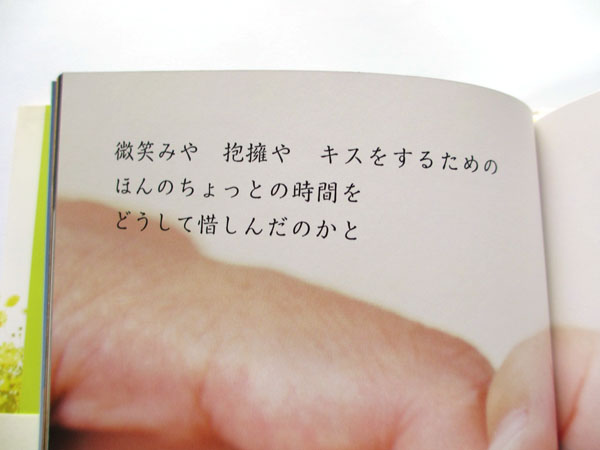 微笑みや　抱擁や　キスをするための
ほんのちょっとの時間を
どうして惜しんだのかと